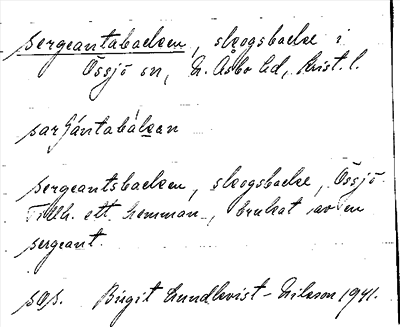 Sergeantabacken, skogsbacke i
Össjö sn, N. Åsbo hd, Krist. l.
sarʃántabàkan
Sergeantsbacken, skogsbacke, Össjö.
Tillh. ett hemman, brukat av en
sergeant.
Birgit Lundkvist-Nilsson 1941.